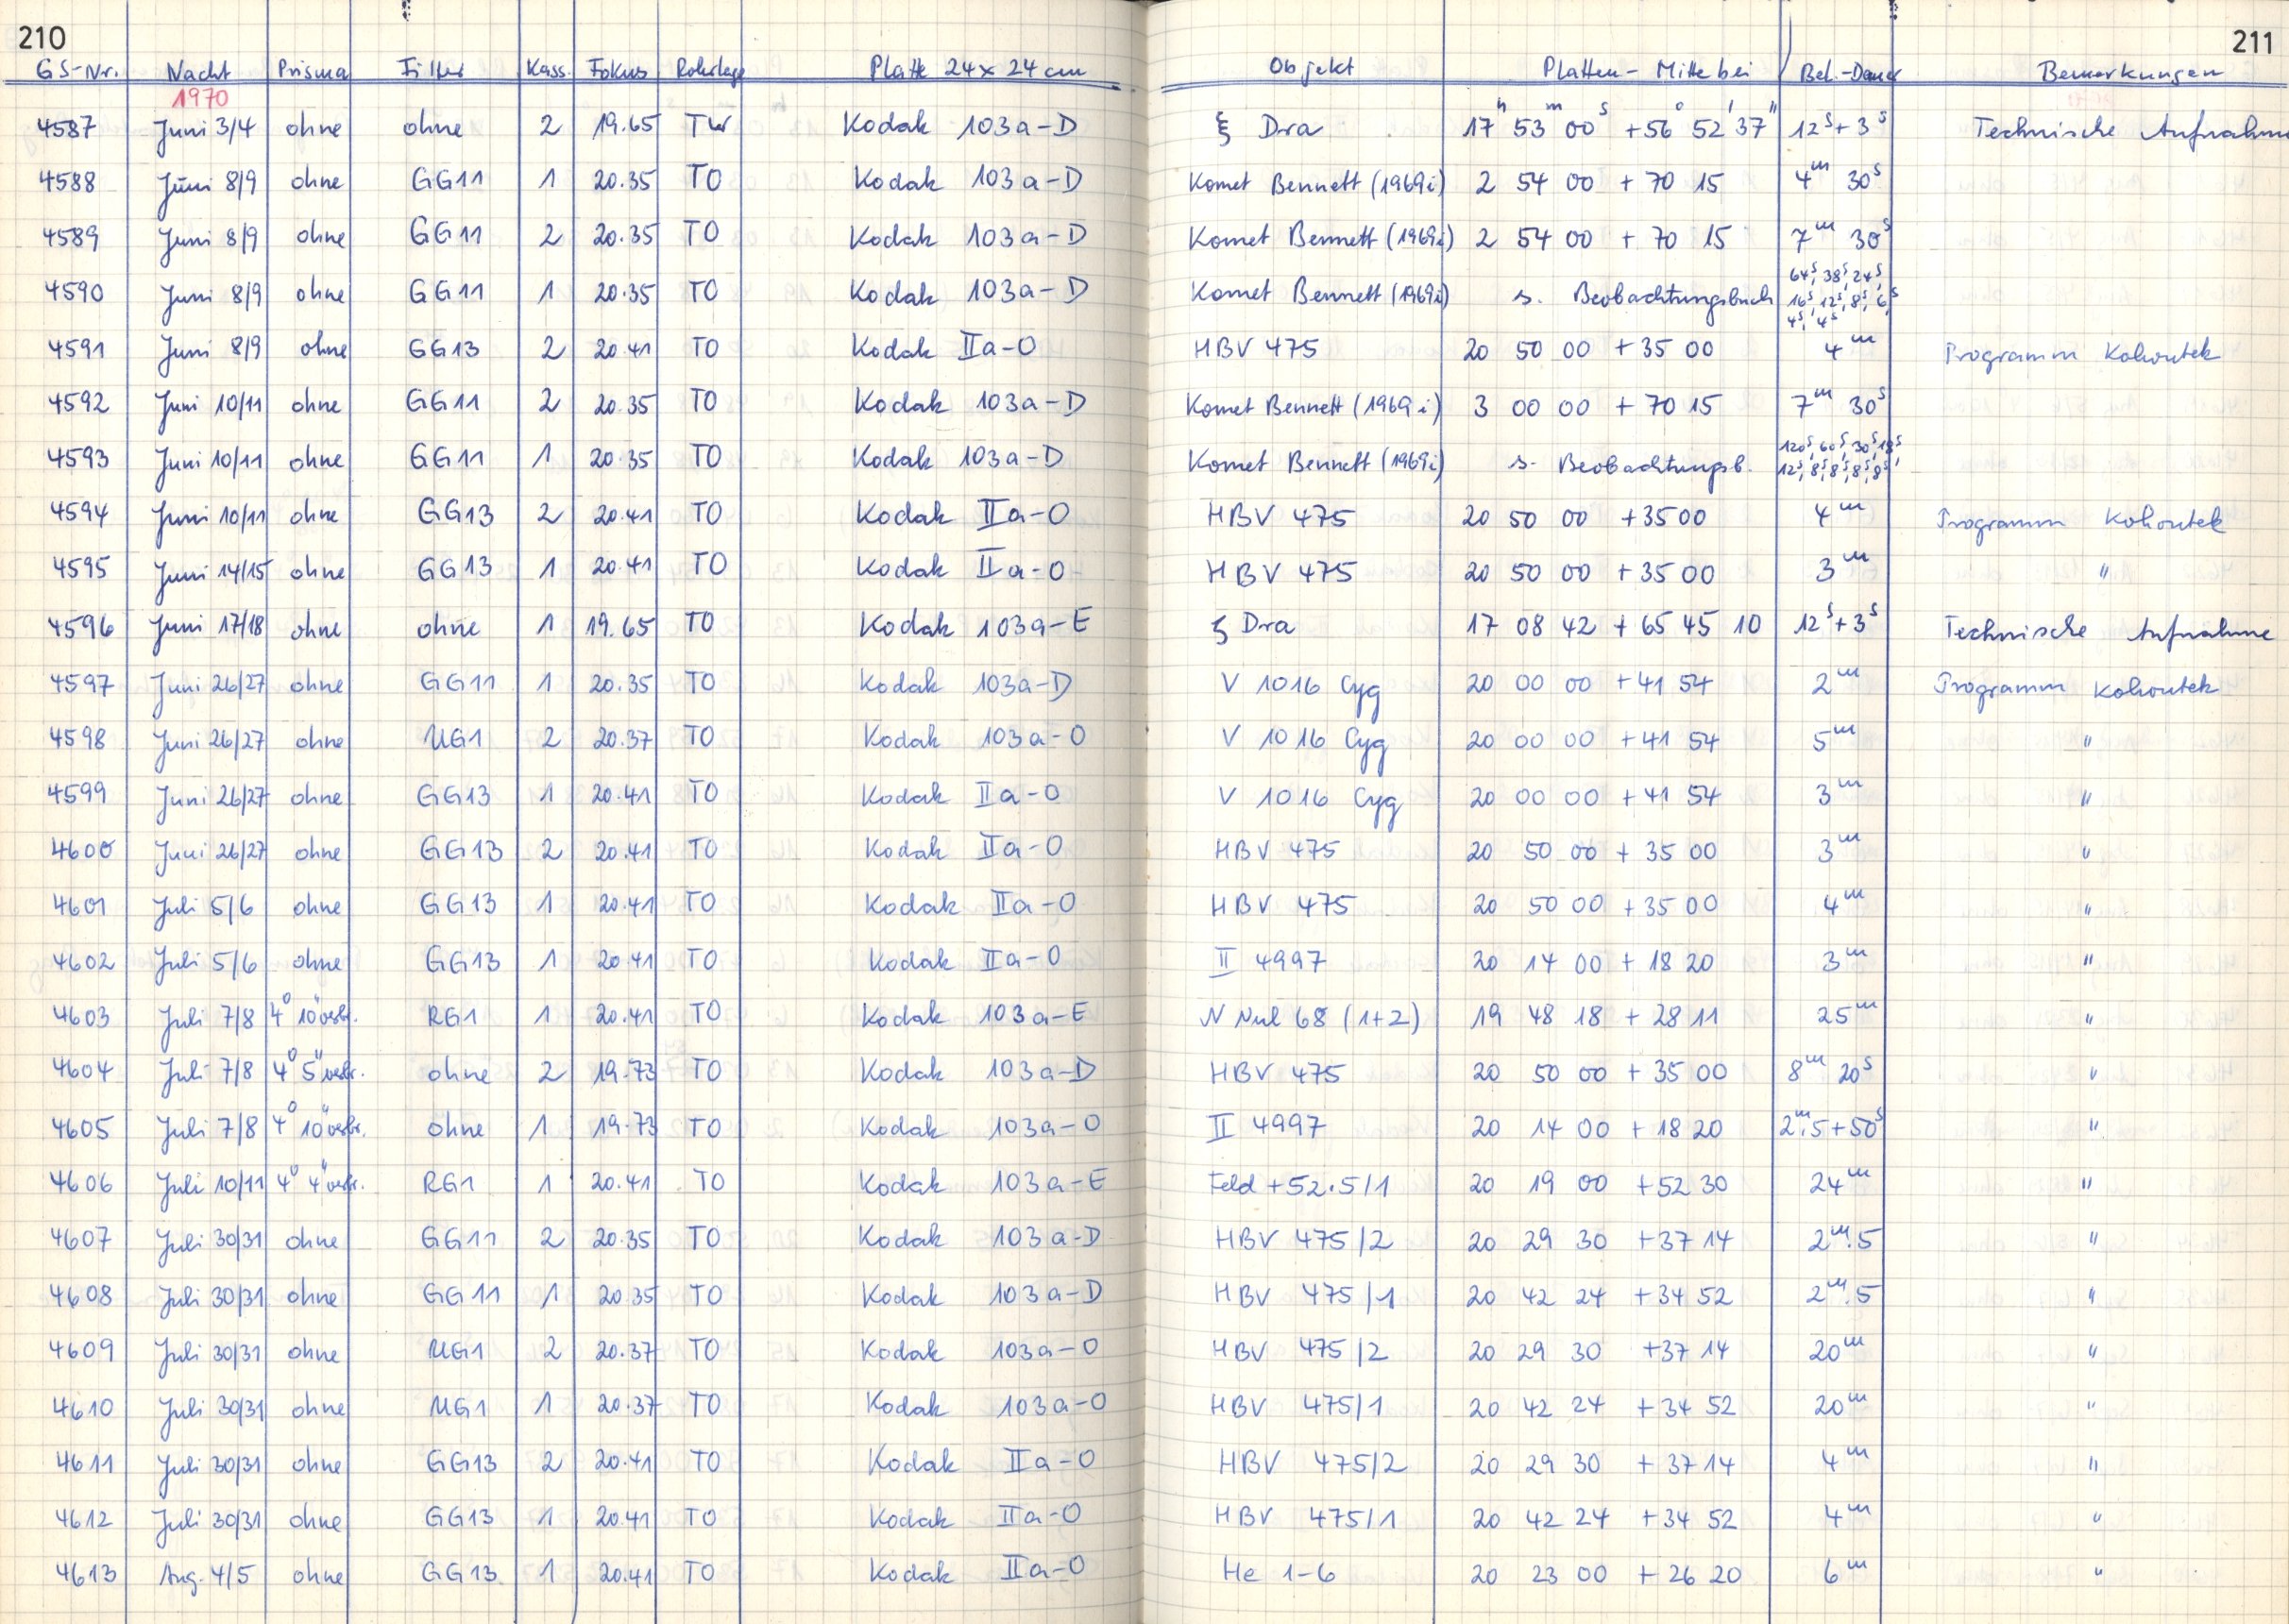 210
211
GS-Nr. Nacht Prisma Filter Kass. Fokus Rohrlage Platte 24 x 24 cm Objekt Platten-Mitte bei Bel.-Dauer Bemerkungen
1970
4587 Juni 3/4 ohne ohne 2 19.65 TW Kodak 103a-D ξ Dra 17h 53m 00s +56° 52' 37" 12s+3s Technische Aufnahme
4588 Juni 8/9 ohne GG11 1 20.35 TO Kodak 103a-D Komet Bennett (1969i) 2 54 00 +70 15 4m 30s
4589 Juni 8/9 ohne GG11 2 20.35 TO Kodak 103a-D Komet Bennett (1969i) 2 54 00 +70 15 7m 30s
4590 Juni 8/9 ohne GG11 1 20.35 TO Kodak 103a-D Komet Bennett (1969i) s. Beobachtungsbuch 64s, 38s, 24s, 16s, 12s, 8s, 6s, 4s, 4s
4591 Juni 8/9 ohne GG13 2 20.41 TO Kodak IIa-O HBV 475 20 50 00 +35 00 4m Programm Kohoutek
4592 Juni 10/11 ohne GG11 2 20.35 TO Kodak 103a-D Komet Bennett (1969i) 3 00 00 +70 15 7m 30s
4593 Juni 10/11 ohne GG11 1 20.35 TO Kodak 103a-D Komet Bennett (1969i) s. Beobachtungsb. 120s, 60s, 30s, 18s, 12s, 8s, 8s, 8s, 8s
4594 Juni 10/11 ohne GG13 2 20.41 TO Kodak IIa-O HBV 475 20 50 00 +35 00 4m Programm Kohoutek
4595 Juni 14/15 ohne GG13 1 20.41 TO Kodak IIa-O HBV 475 20 50 00 +35 00 3m "
4596 Juni 17/18 ohne ohne 1 19.65 TO Kodak 103a-E ζ Dra 17 08 42 +65 45 10 12s+3s Technische Aufnahme
4597 Juni 26/27 ohne GG11 1 20.35 TO Kodak 103a-D V 1016 Cyg 20 00 00 +41 54 2m Programm Kohoutek
4598 Juni 26/27 ohne UG1 2 20.37 TO Kodak 103a-O V 1016 Cyg 20 00 00 +41 54 5m "
4599 Juni 26/27 ohne GG13 1 20.41 TO Kodak IIa-O V 1016 Cyg 20 00 00 +41 54 3m "
4600 Juni 26/27 ohne GG13 2 20.41 TO Kodak IIa-O HBV 475 20 50 00 +35 00 3m "
4601 Juli 5/6 ohne GG13 1 20.41 TO Kodak IIa-O HBV 475 20 50 00 +35 00 4m "
4602 Juli 5/6 ohne GG13 1 20.41 TO Kodak IIa-O II 4997 20 14 00 +18 20 3m "
4603 Juli 7/8 4° 10"verbr. RG1 1 20.41 TO Kodak 103a-E N Vul 68 (1+2) 19 48 18 +28 11 25m "
4604 Juli 7/8 4° 5"verbr. ohne 2 19.73 TO Kodak 103a-D HBV 475 20 50 00 +35 00 8m 20s "
4605 Juli 7/8 4° 10"verbr. ohne 1 19.73 TO Kodak 103a-O II 4997 20 14 00 +18 20 2m.5+50s "
4606 Juli 10/11 4° 4"verbr. RG1 1 20.41 TO Kodak 103a-E Feld +52.5/1 20 19 00 +52 30 24m "
4607 Juli 30/31 ohne GG11 2 20.35 TO Kodak 103a-D HBV 475/2 20 29 30 +37 14 2m.5 "
4608 Juli 30/31 ohne GG11 1 20.35 TO Kodak 103a-D HBV 475/1 20 42 24 +34 52 2m.5 "
4609 Juli 30/31 ohne UG1 2 20.37 TO Kodak 103a-O HBV 475/2 20 29 30 +37 14 20m "
4610 Juli 30/31 ohne UG1 1 20.37 TO Kodak 103a-O HBV 475/1 20 42 24 +34 52 20m "
4611 Juli 30/31 ohne GG13 2 20.41 TO Kodak IIa-O HBV 475/2 20 29 30 +37 14 4m "
4612 Juli 30/31 ohne GG13 1 20.41 TO Kodak IIa-O HBV 475/1 20 42 24 +34 52 4m "
4613 Aug. 4/5 ohne GG13 1 20.41 TO Kodak IIa-O He 1-6 20 23 00 +26 20 6m "